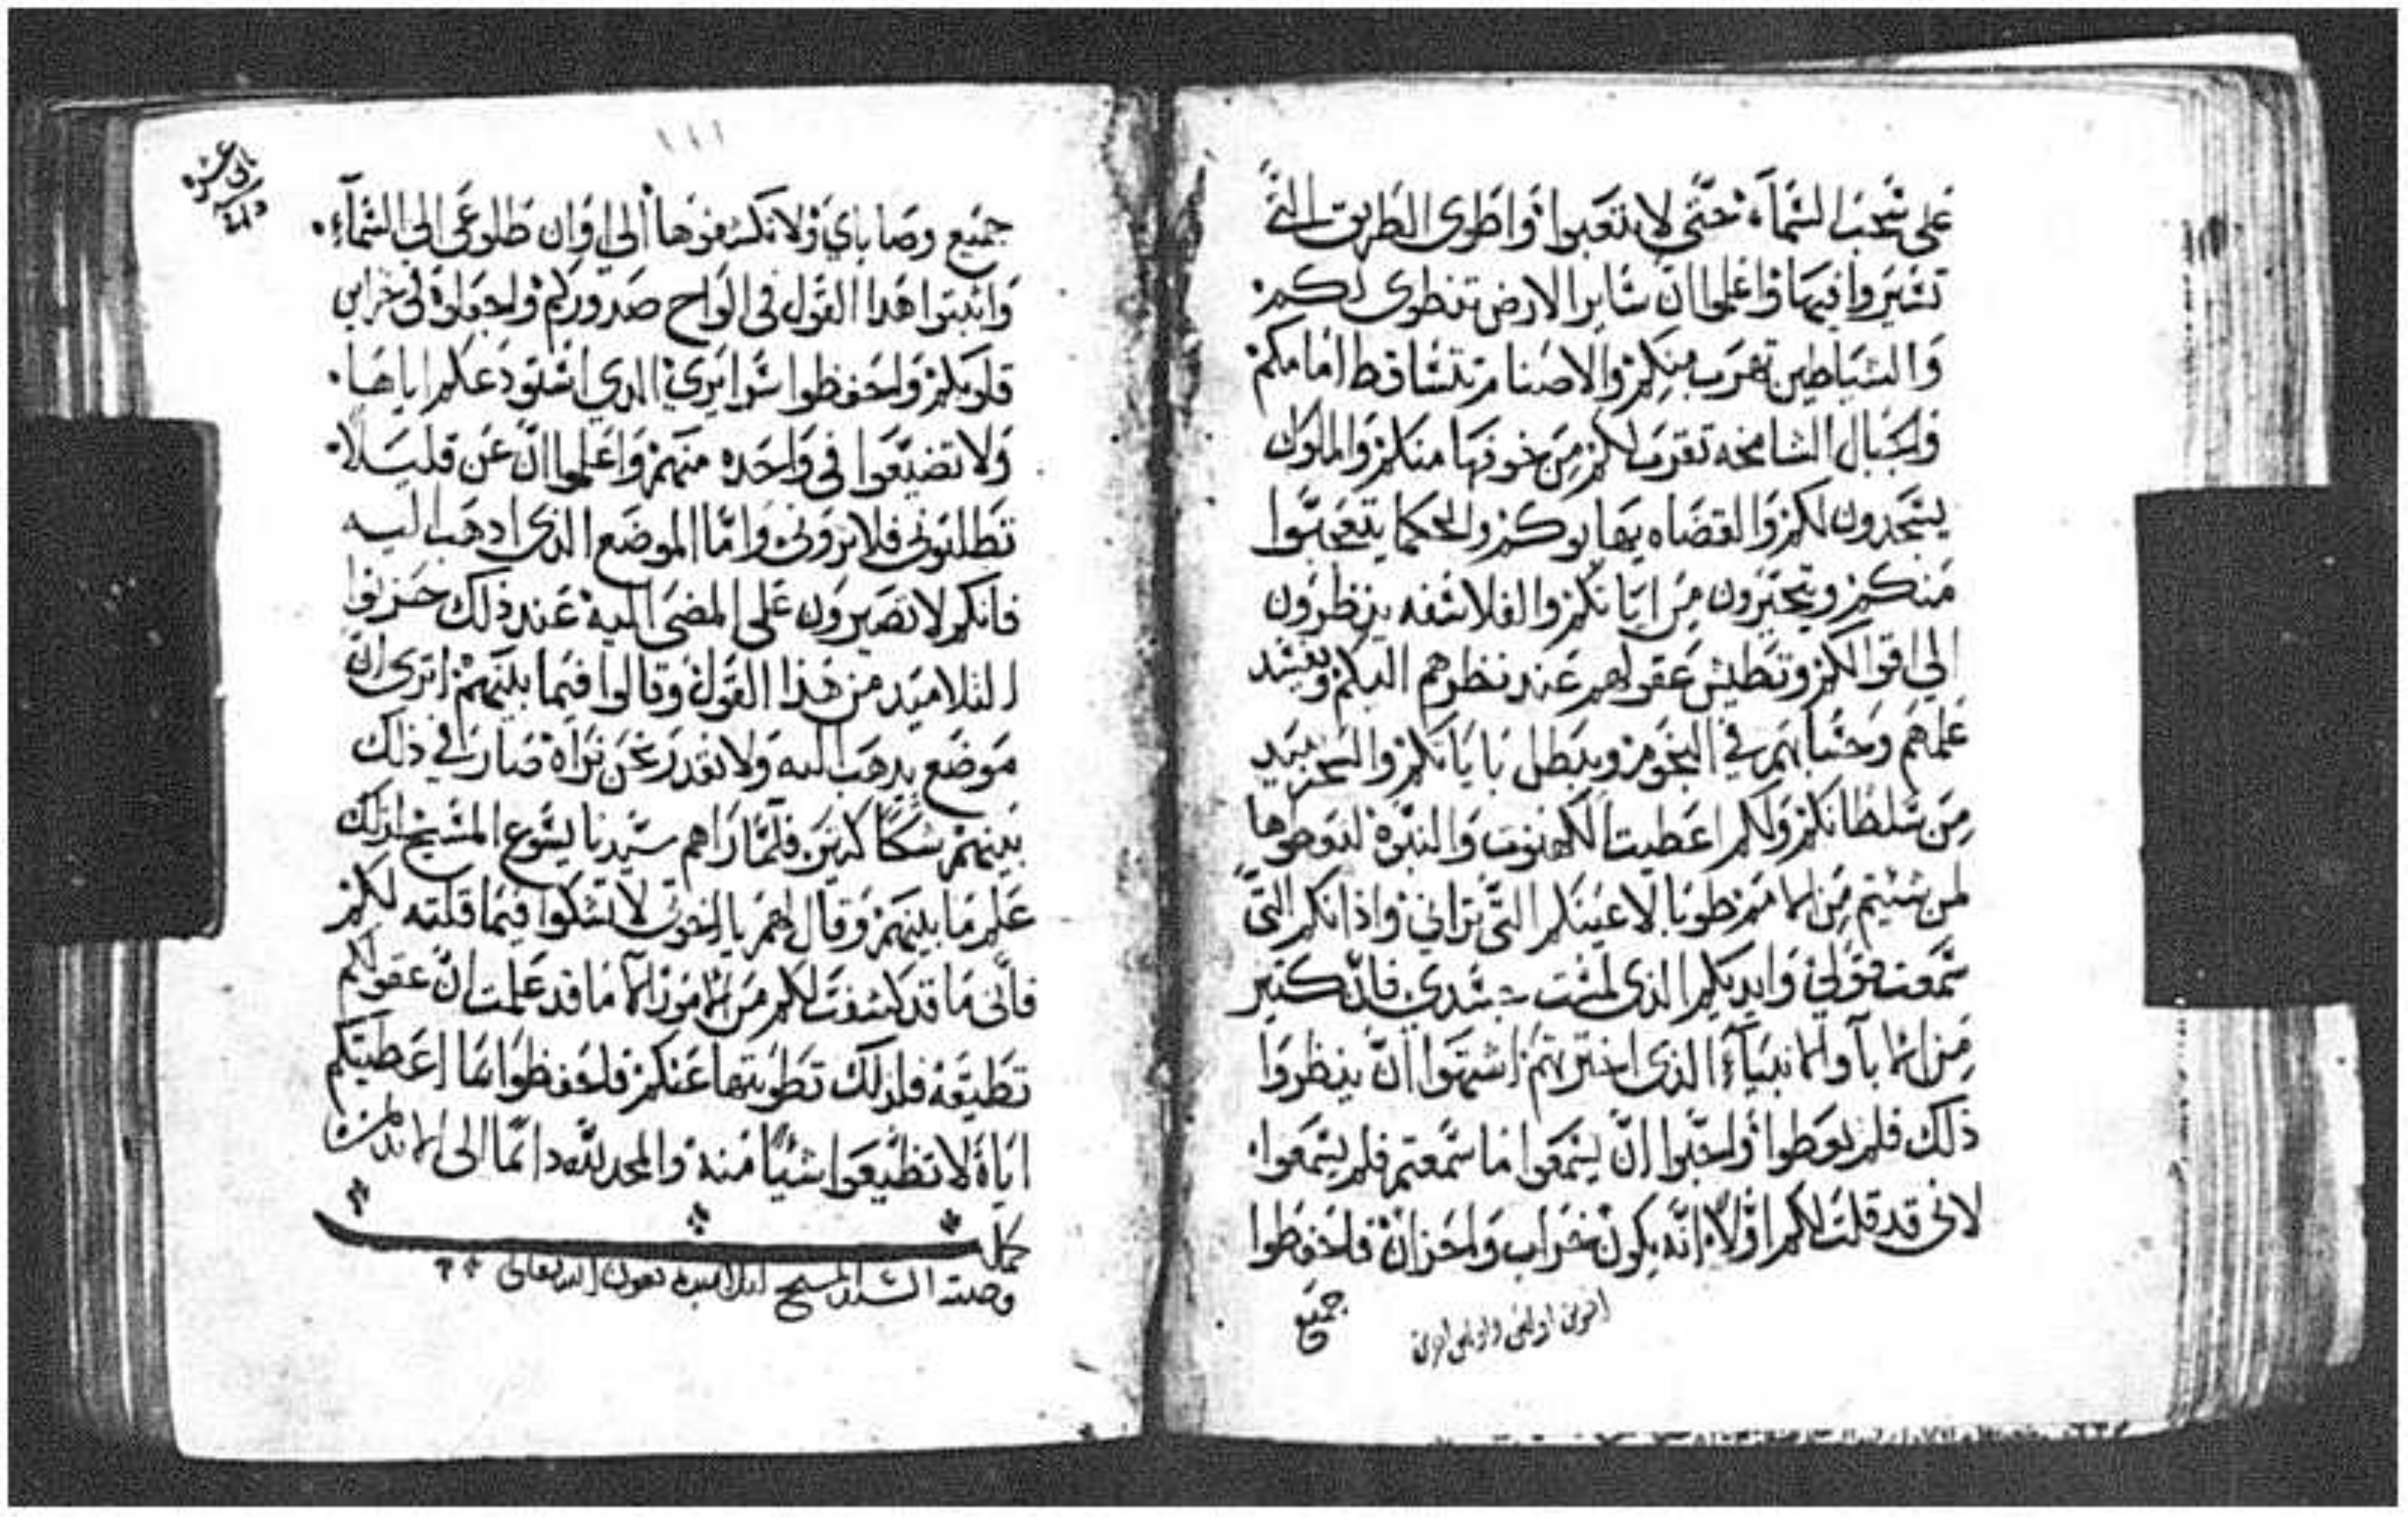 على سحب السَّمآء حَتَّى لا تتعَبوا وَاطوى الطَريق التَّي
تسَيروا فيهَا وَاعلموا انّ سَاير الارض تنطوى لكم
وَالشيَاطين تهرَب منكم والاصنام تتسَاقط امَامكم
وَالجبَال الشامخه تقرب لكم مِن خوفهَا منكم وَالملوك
يسَجدون لكم وَالقضَاه يهابوكم والحكما يتعَجبَّوا
مَنكم ويتحَيَّرون مِن ايَاتكم والفلاسَفه ينظرون
الي اقوالكم وتطيش عَقولهم عَند نظرهم اليكم ويفسَد
عَلمهم وَحسَابهم في النجَوم ويبطل بَايَاتكم والسَحر يبَيد
مِن سَلطَانكم وَلكم اعَطيت الكهنوت وَالنبَوة لتعَطوها
لمن شئيتم مِن الامم طوبَا لاعيَنكم التَّي تراني وَاذانكم التَّي
سَّمعَت قولي وَايديكم الذى لمسَت جسَدي فانّ كتير
مِن الابآ والانبيَآء الذى اخترتهم اشتهَوا انّ ينظروا
ذَلك فلم يعَطوا وَاحَبّوا انّ يسَمعَوا مَا سَّمعتم فلم يسَّمعَوا
لاني قد قلت لكم اوَّلاً انّه يكون خَراب وَاحزان فاحَفظوا
جَميَع
١١١
جميَع وصَاياي وَلا تكشفوهَا الي اوَان طلوعَى الى السَّمآء
وَاثبتوا هَدا القول في الوَاح صَدوركم وَاجعَلوة في خزاين
قلوبكم وَاحَفظوا سَرايري الدي استودَعكم اياهَا
وَلا تضيّعَوا في وَاحَده منهَم وَاعَلموا انّ عَن قليَلاً
تطلبَوني فلا تروَني وَامّا الموضَع الذى ادهَب اليه
فانكم لا تصَيرون عَلى المضى اليه عَند ذلك حَزنوا
التلاميَد من هَذا القول وَقالوا فيَما بينَهم اترى انّ
مَوضَع يدهَب اليه وَلا نقدر نحَن نرَاة صَار في ذلك
بَينهَم شكاً كتير فلّما رَاهم سَيدنا يسَوع المسَيح ادلك
عَلم مَا بينهَم وقال لهم يا اخوتي لا تشكوا فيَما قلته لكم
فانّى مَا قد كشفت لكم مَن الامور الاّ مَا قد عَلمت انّ عقولكم
تطيَقه فلذلك تطويتها عَنكم فاحَفظوا مَا اعَطيتكم
ايّاة لا تظيّعَوا شيًا مَنه والمجد لله دائمًا الى الابد امين
كمل
وصية السيد المسيح لتلاميده بعون الله تعالى